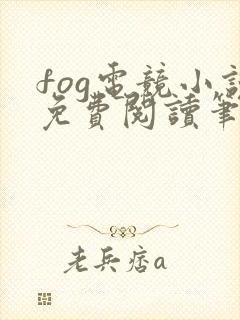 fog電競小說
免費閱讀筆
老兵痞a